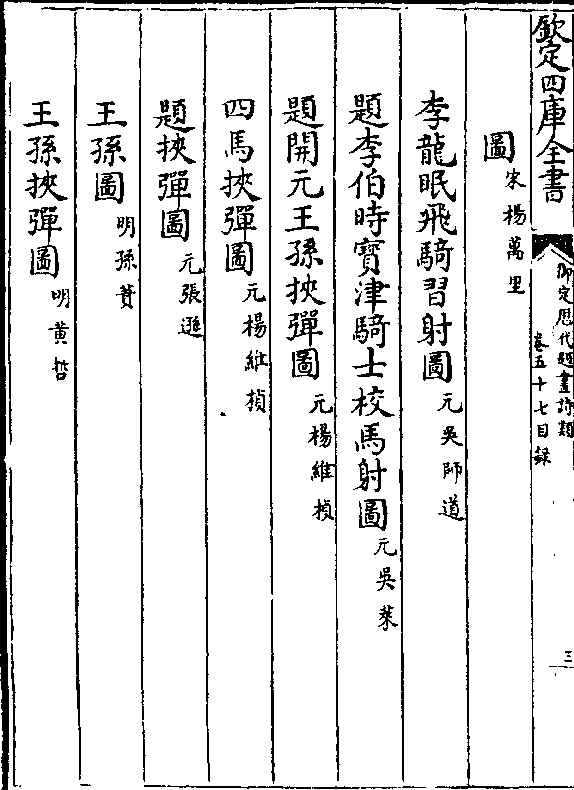 欽定四庫全書
御定歷代題畫詩類
卷五十七目錄
三
圖宋楊萬里
李龍眠飛騎習射圖元吳師道
題李伯時寶津騎士校馬射圖元吳萊
題開元王孫挾彈圖元楊維楨
四馬挾彈圖元楊維楨
題挾彈圖元張遜
王孫圖明孫蕡
王孫挾彈圖明黃哲